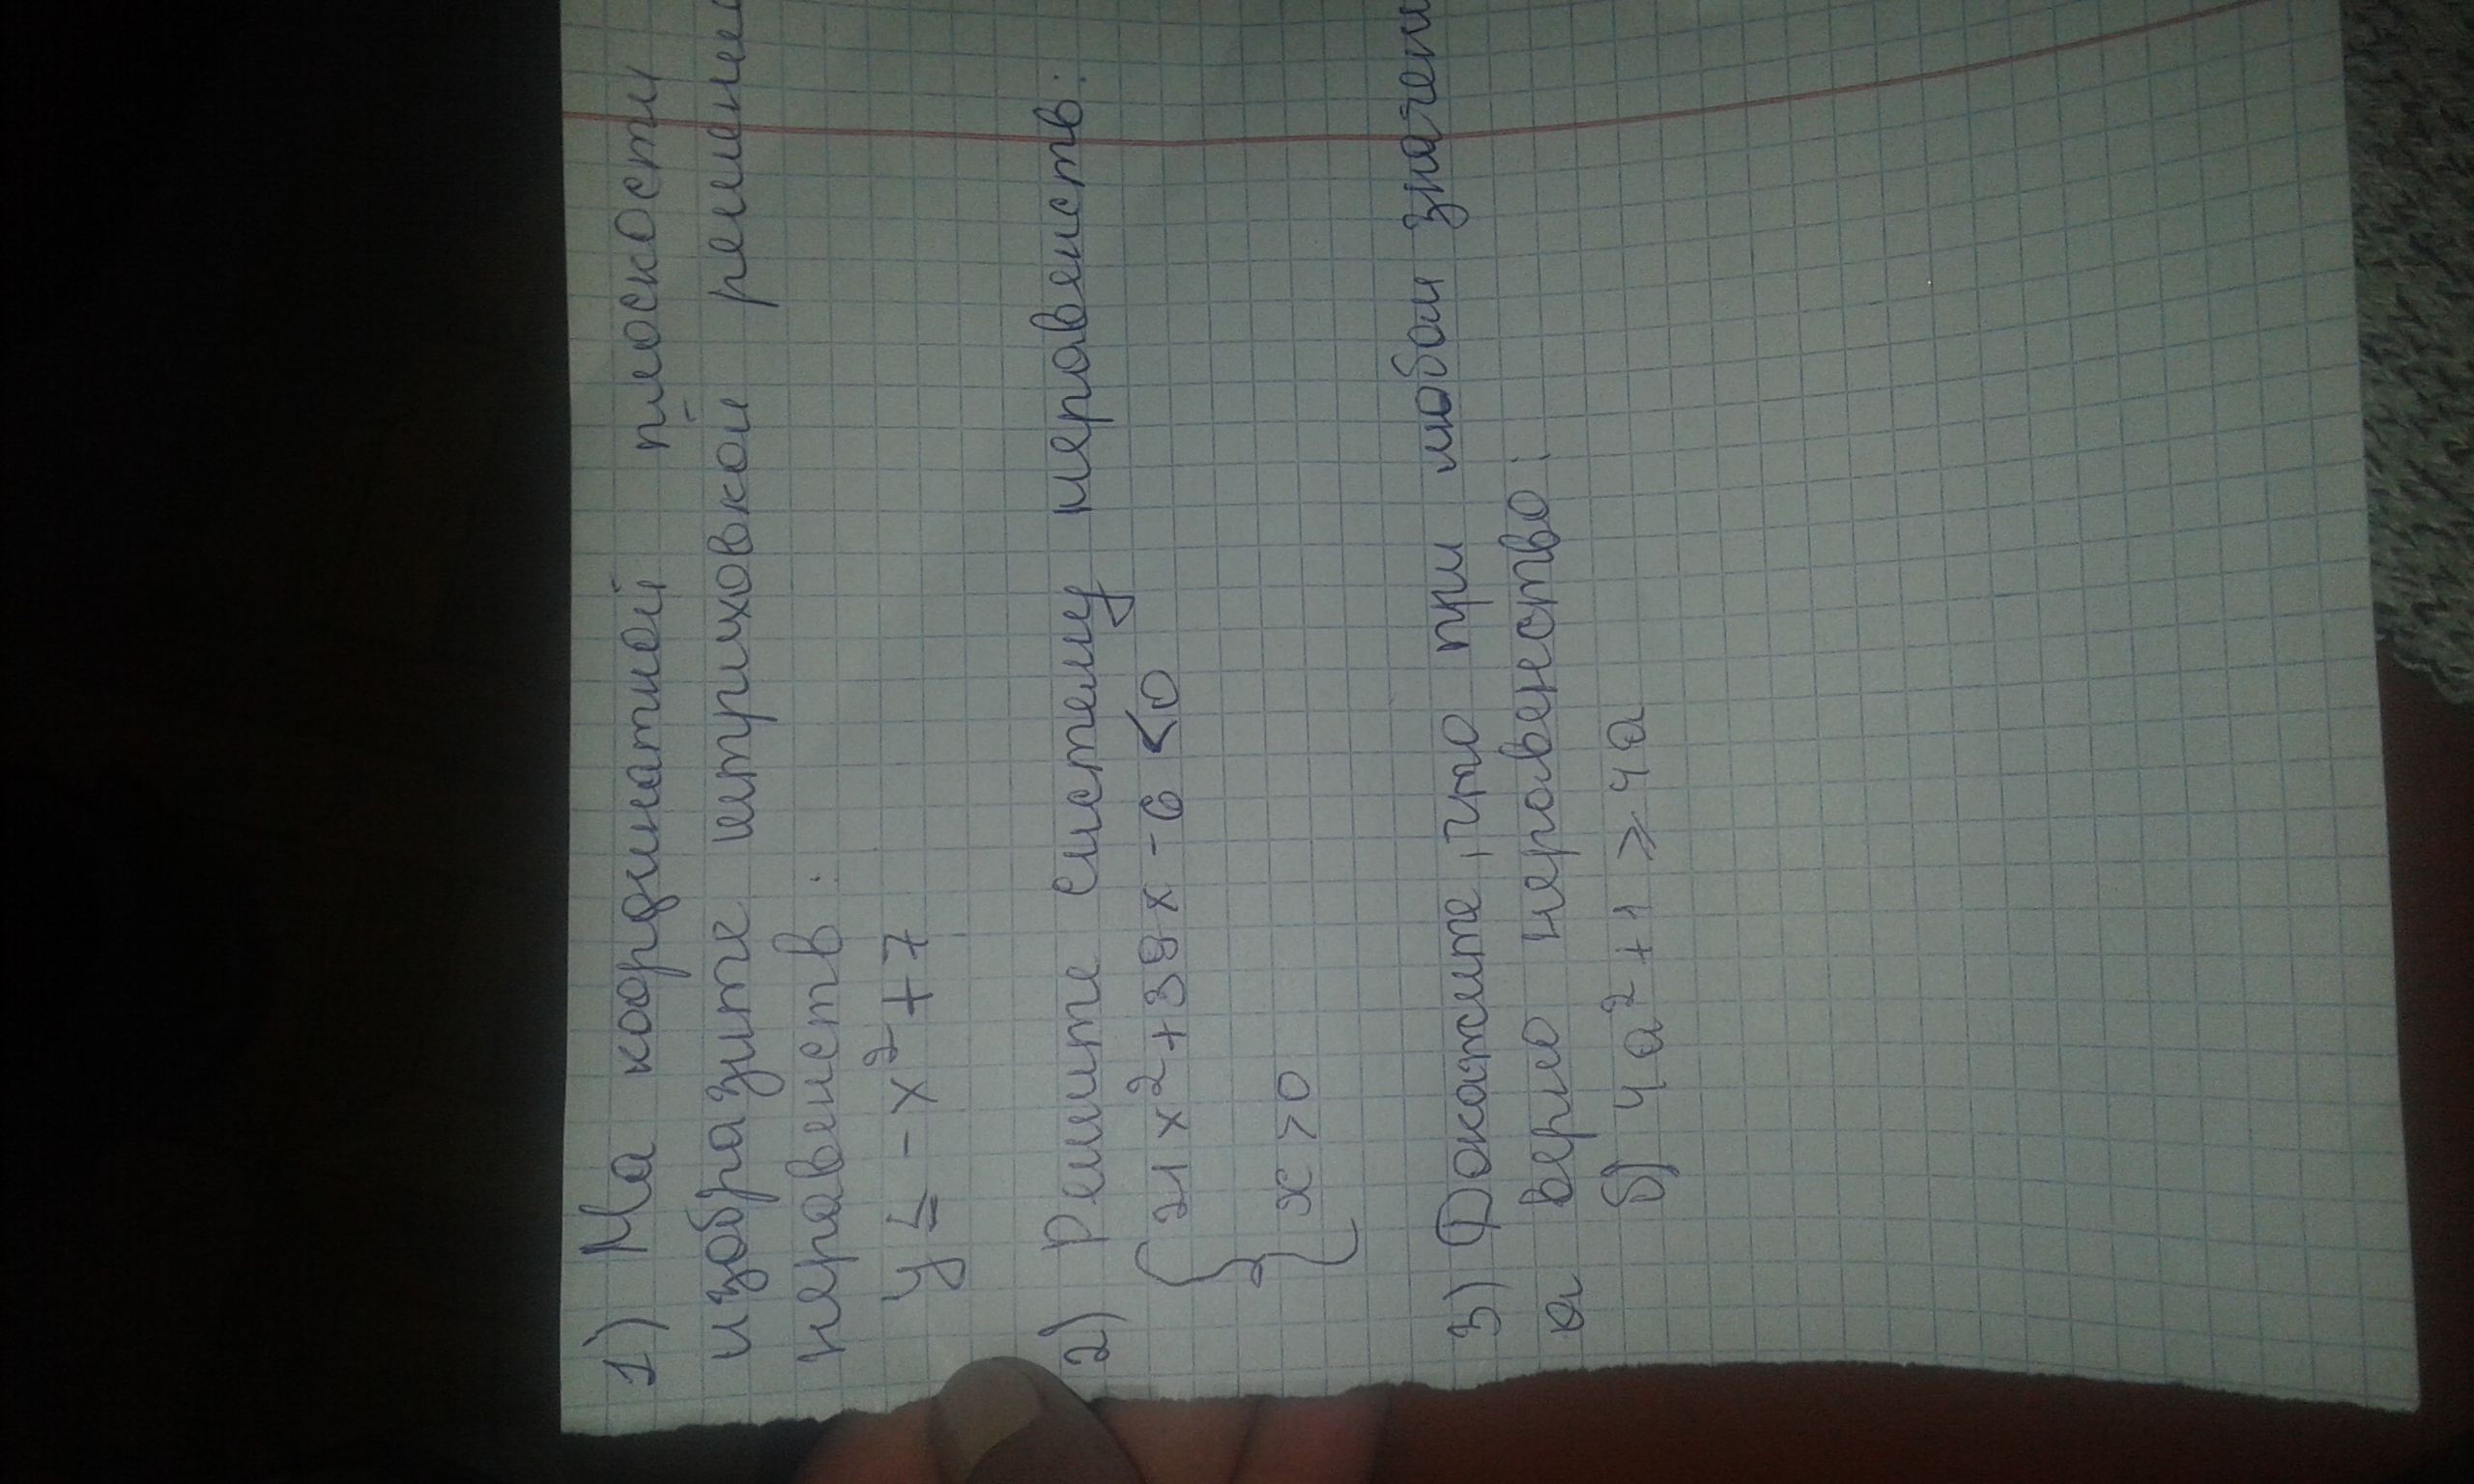 1) На координатной плоскости
изобразите штриховкой решение
неравенств:
y ≤ -x²+7
2) Решите систему неравенств:
{ 21x²+38x-6<0
x>0
3) Докажите, что при любом значени
а верно неровенство:
б) 4а²+1 ≥ 4а